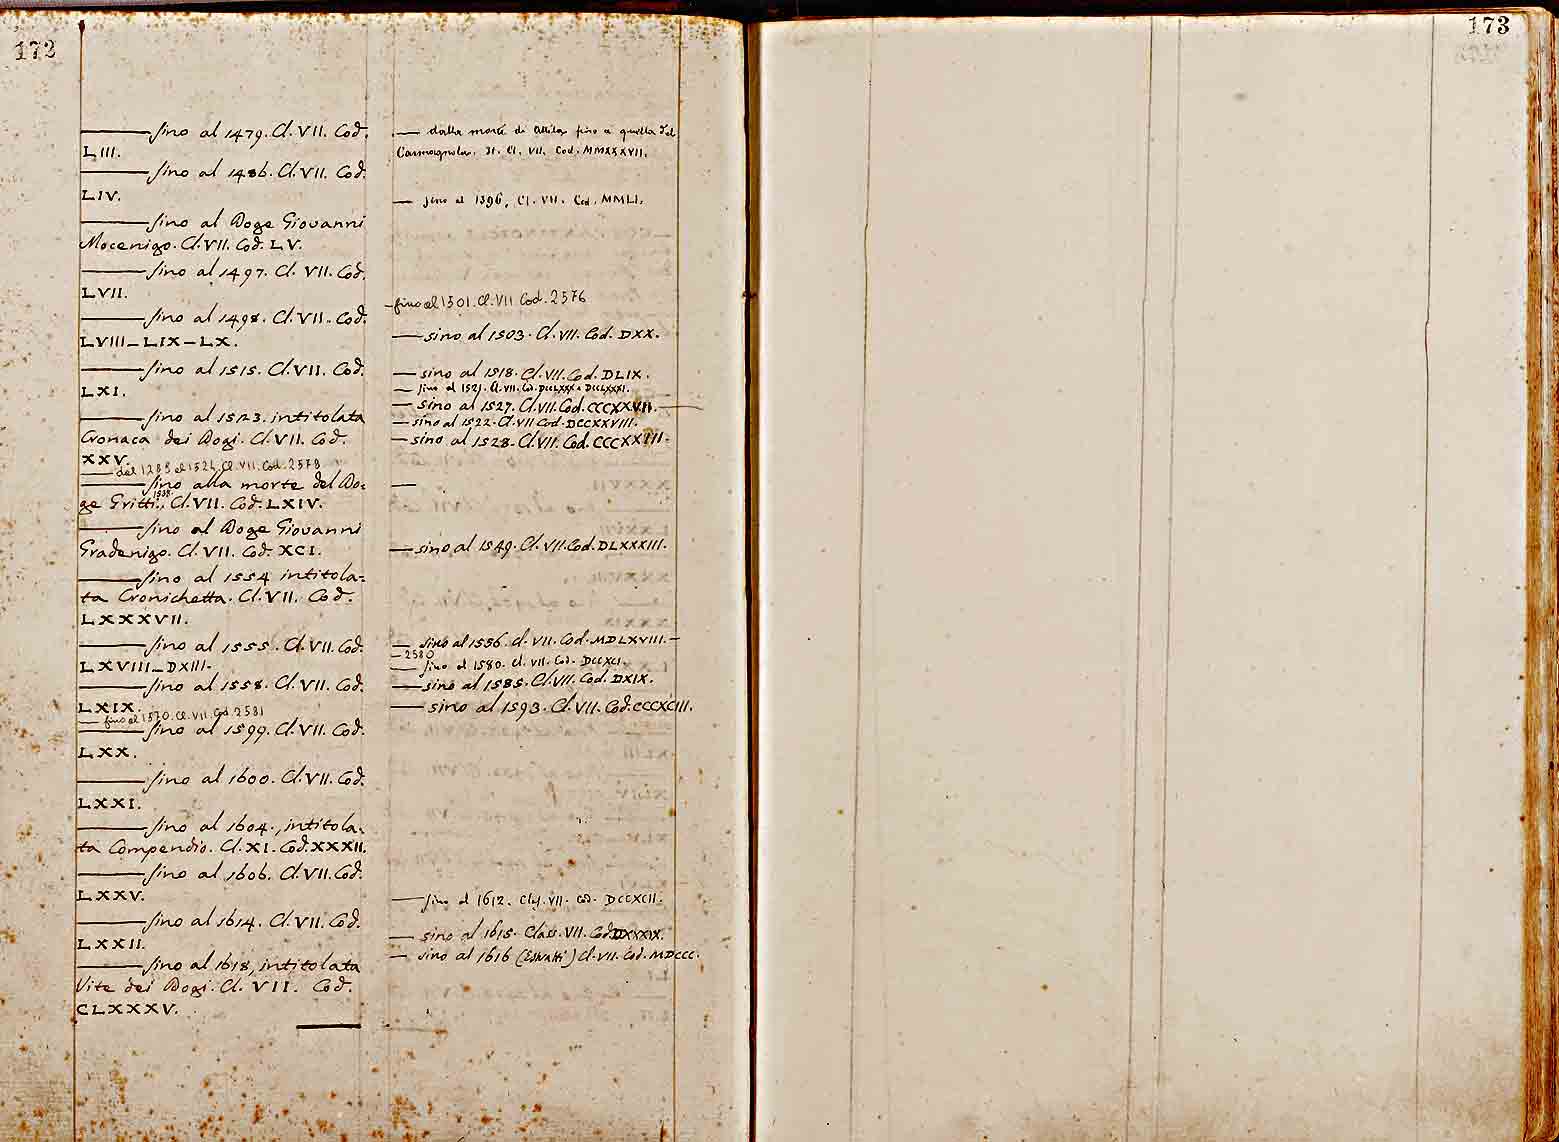 172
——— sino al 1479. Cl. VII. Cod.
LIII.
——— sino al 1486. Cl. VII. Cod.
LIV.
——— sino al Doge Giovanni
Mocenigo. Cl. VII. Cod. LV.
——— sino al 1497. Cl. VII. Cod.
LVII.
——— sino al 1498. Cl. VII. Cod.
LVIII – LIX – LX.
——— sino al 1515. Cl. VII. Cod.
LXI.
——— sino al 1523. intitolata
Cronaca dei Dogi. Cl. VII. Cod.
XXV.
——— dal 1288 al 1524. Cl. VII. Cod. 2578
——— sino alla morte del Do=
1538.
ge Gritti., Cl. VII. Cod. LXIV.
——— sino al Doge Giovanni
Gradenigo. Cl. VII. Cod. XCI.
——— sino al 1554 intitola=
ta Cronichetta. Cl. VII. Cod.
LXXXVII.
——— sino al 1555. Cl. VII. Cod.
LXVIII – DXIII.
——— sino al 1558. Cl. VII. Cod.
LXIX.
— fino al 1570. Cl. VII. Cod 2581
——— sino al 1599. Cl. VII. Cod.
LXX.
——— sino al 1600. Cl. VII. Cod.
LXXI.
——— sino al 1604., intitola=
ta Compendio. Cl. XI. Cod. XXXII.
——— sino al 1606. Cl. VII. Cod.
LXXV.
——— sino al 1614. Cl. VII. Cod.
LXXII.
——— sino al 1618, intitolata
Vite dei Dogi. Cl. VII. Cod.
CLXXXV.
— dalla morte di Attila fino a quella del
Carmagnola. It. Cl. VII. Cod. MMXXXVII.
— fino al 1396, Cl. VII. Cod. MMLI.
– fino al 1501. Cl. VII Cod. 2576
— sino al 1503. Cl. VII. Cod. DXX.
— sino al 1518. Cl. VII. Cod. DLIX.
— sino al 1521. Cl. VII. Cod. DCCLXXX e DCCLXXXI.
— sino al 1527. Cl. VII. Cod. CCCXXVII.—
— sino al 1522. Cl. VII Cod. DCCXXVIII.
— sino al 1528. Cl. VII. Cod. CCCXXVIII.
—
— sino al 1549. Cl. VII. Cod. DLXXXIII.
— sino al 1556. Cl. VII. Cod. MDLXVIII.—
— 2580
— sino al 1580. Cl. VII. Cod. DCCXCI.
— sino al 1585. Cl. VII. Cod. DXIX.
— sino al 1593. Cl. VII. Cod. CCCXCIII.
— sino al 1612. VII. Cod. DCCXCII.
— sino al 1615. Class. VII. Cod. DXXXIX.
— sino al 1616 (Estratti) Cl. VII. Cod. MDCCC.
173